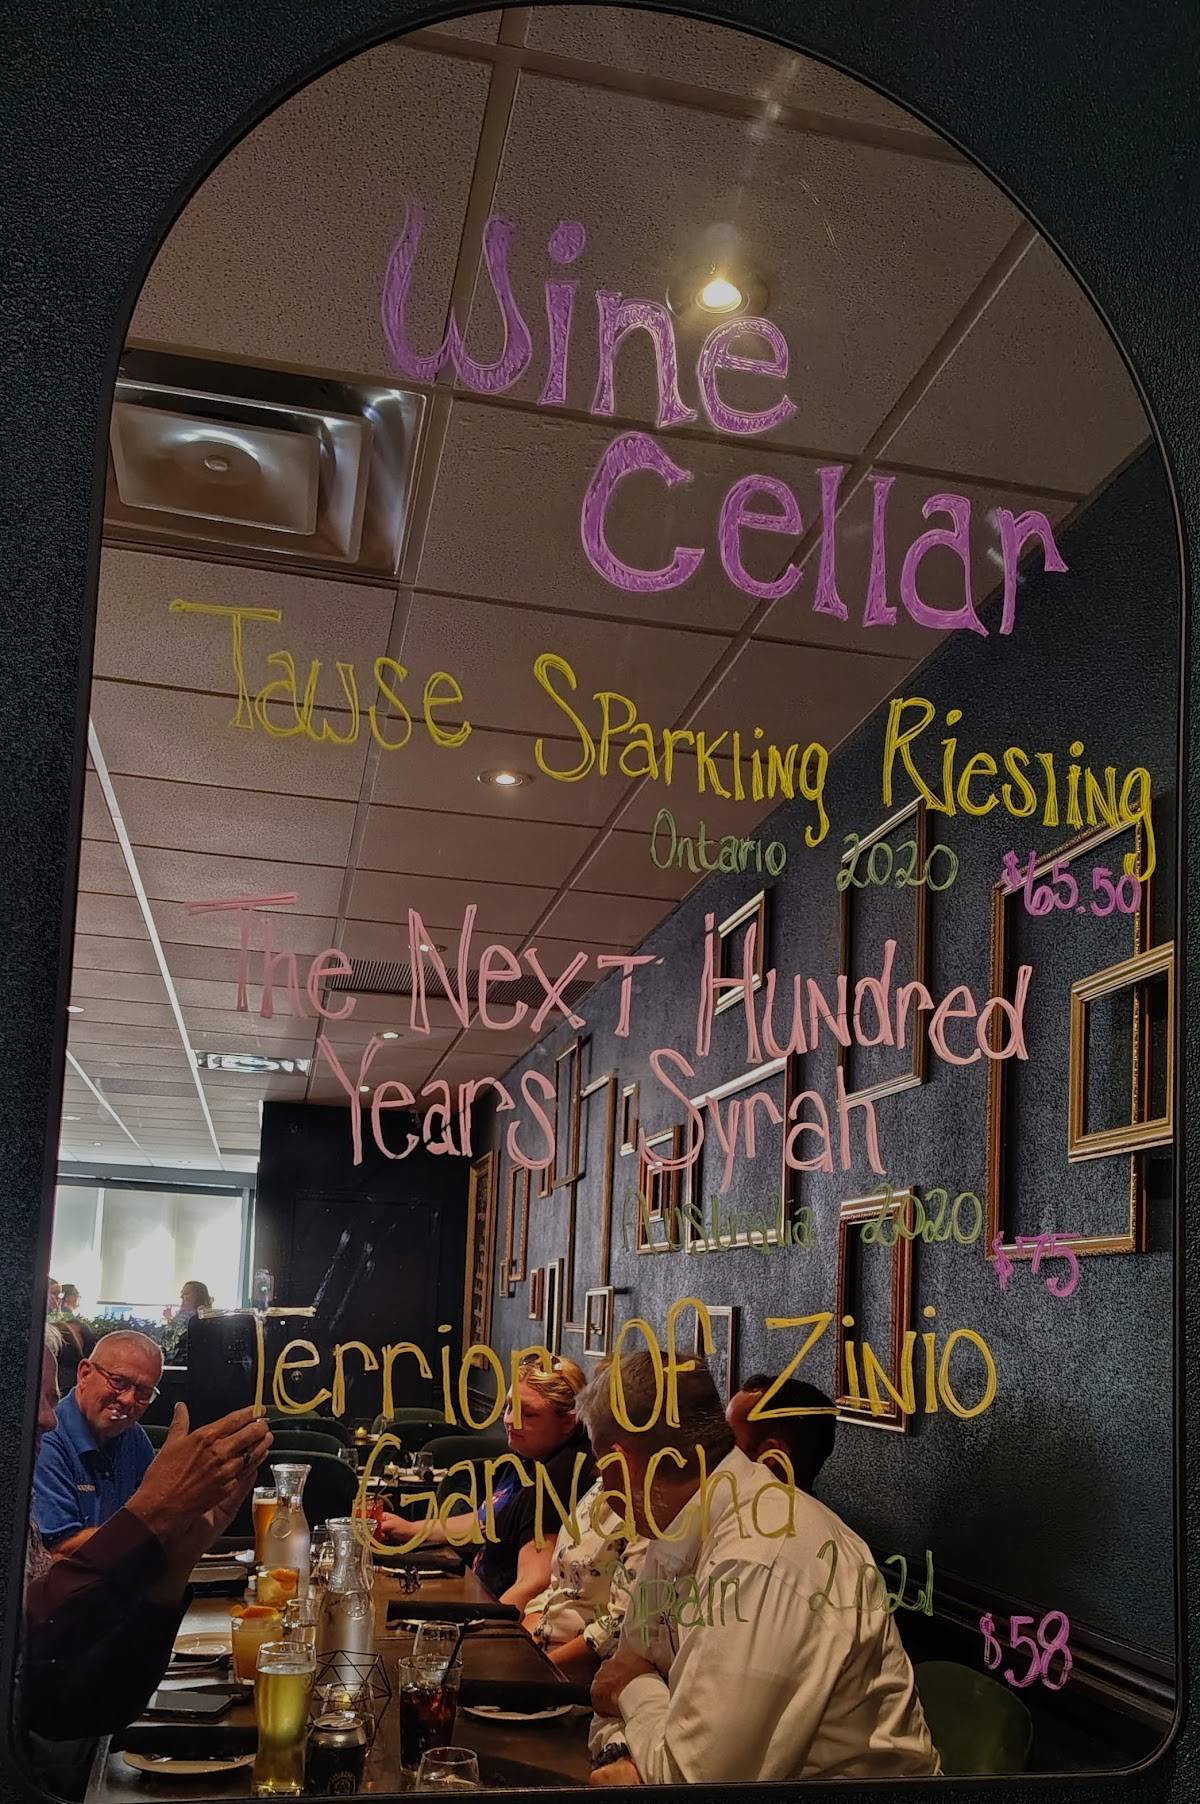 Wine
Cellar
Tawse Sparkling Riesling
Ontario 2020 $65.50
The Next Hundred
Years Syrah
Australia 2020
$75
Terrior Of Zinio
Garnacha
Spain 2021
$58